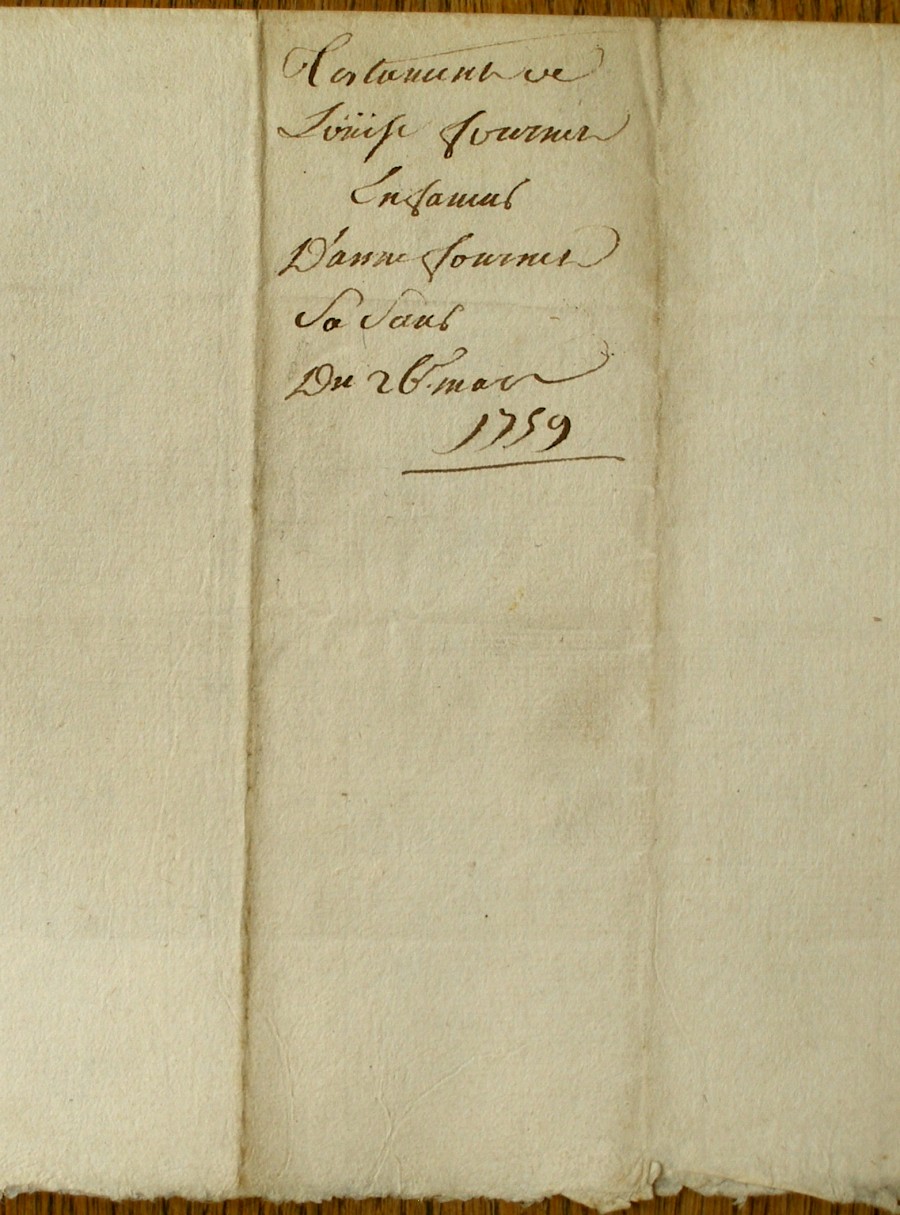 Testament de
Loüise fournier
En faveur
D'anne fournier
Sa Sœur
Du 26e. mars
1759